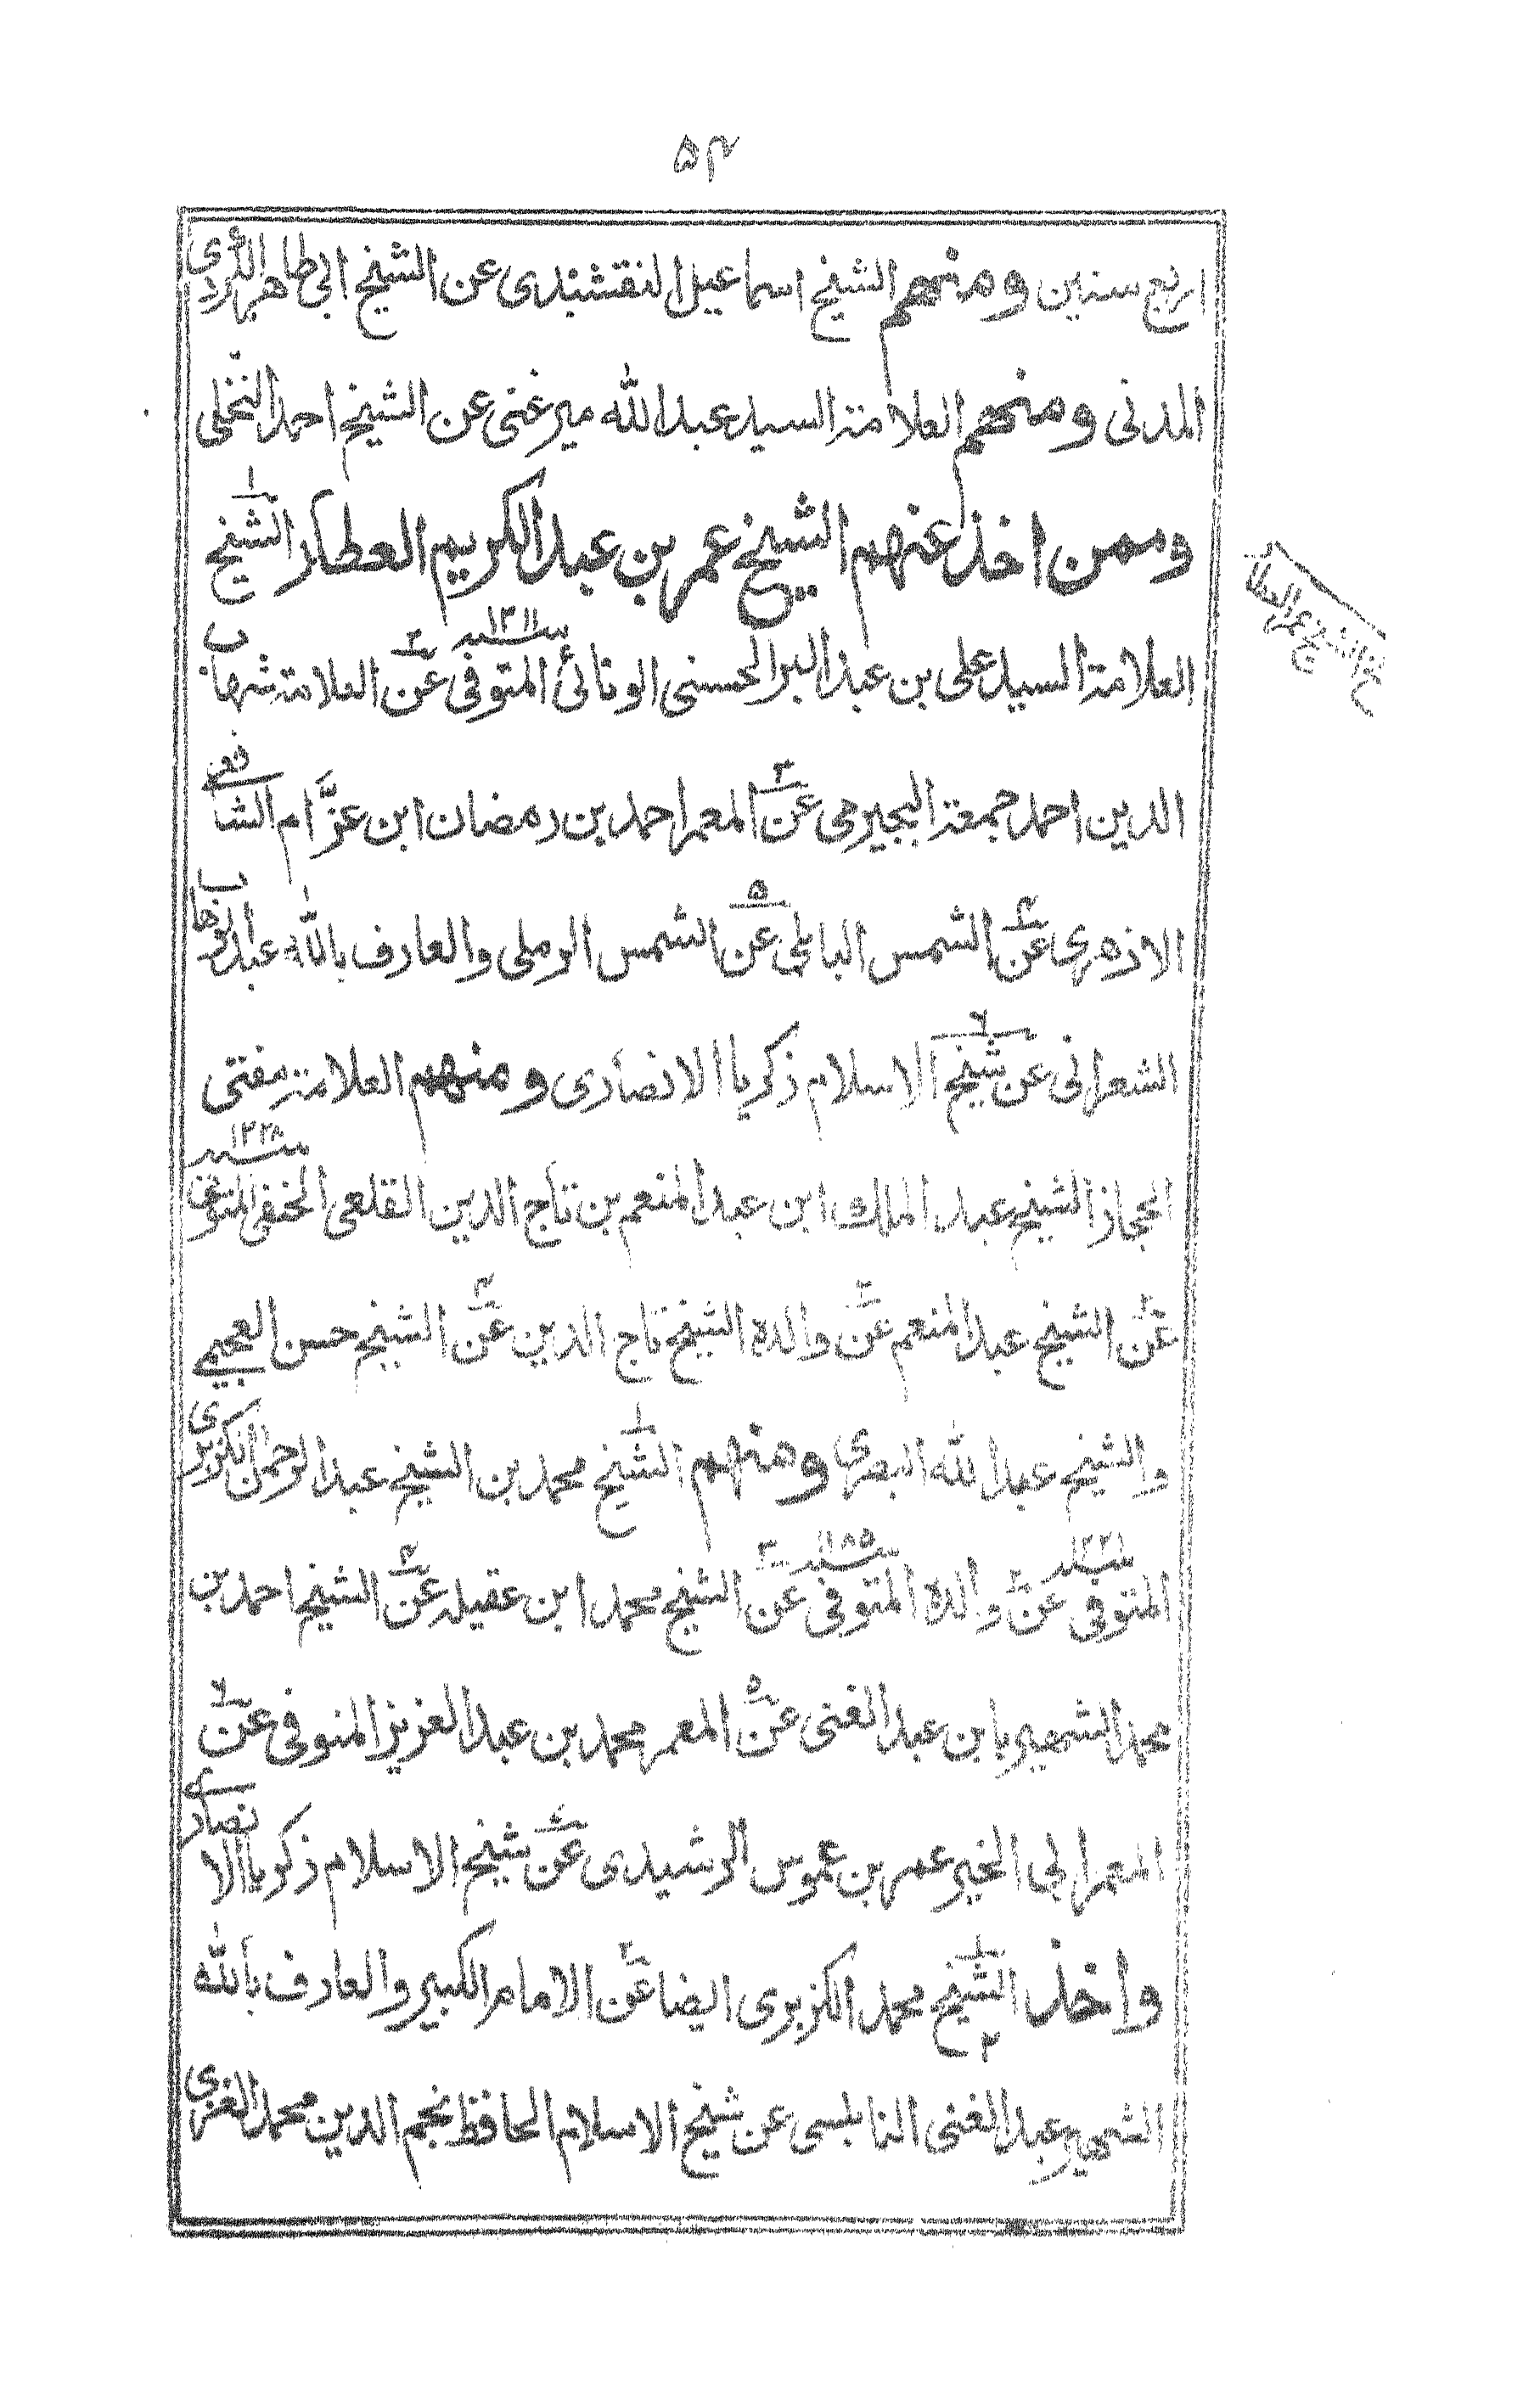 ۵۴
اربع سنين ومنهم الشيخ اسماعيل النقشبندى عن الشيخ ابى طاهر الكردى
المدنى ومنهم العلامة السيد عبد الله ميرغنى عن الشيخ احمد النخلى
وممن اخذ عنهم الشيخ عمر بن عبد الكريم العطار الشيخ ١
العلامة السيد على بن عبد البر الحسنى الونائى المتوفى سنه ١٢١١ عن ٢ العلامة شهاب
الدين احمد جمعة البجيرمى عن ٣ المعمر احمد بن رمضان ابن عزّام الشافعى
الازهرى عن ۴ الشمس البابلى عن ۵ الشمس الرملى والعارف بالله عبد الوهاب
الشعرانى عن شيخ ٦ الاسلام زكريا الانصارى ومنهم العلامة مفتى
الحجاز الشيخ عبد الملك ابن عبد المنعم بن تاج الدين القلعى الحنفى المتوفى سنه ١٢٢٨
عن ٢ الشيخ عبد المنعم عن ٣ والده الشيخ تاج الدين عن ۴ الشيخ حسن العجيمى
والشيخ عبد الله البصرى ومنهم الشيخ ١ محمد بن الشيخ عبد الرحمن الكزبرى
المتوفى سنه ١٢٢١ عن ٢ والده المتوفى سنه ١١٨۵ عن ٣ الشيخ محمد ابن عقيله عن ۴ الشيخ احمد بن
محمد الشهير بابن عبد الغنى عن ۵ المعمر محمد بن عبد العزيز المنوفى عن ٦
المعمر ابى الخير عمر بن عموس الرشيدى عن شيخ الاسلام زكريا الانصارى
واخذ الشيخ ١ محمد الكزبرى ايضا عن ٢ الامام الكبير والعارف بالله
الشهير عبد الغنى النابلسى عن شيخ ٣ الاسلام الحافظ نجم الدين محمد الغزى